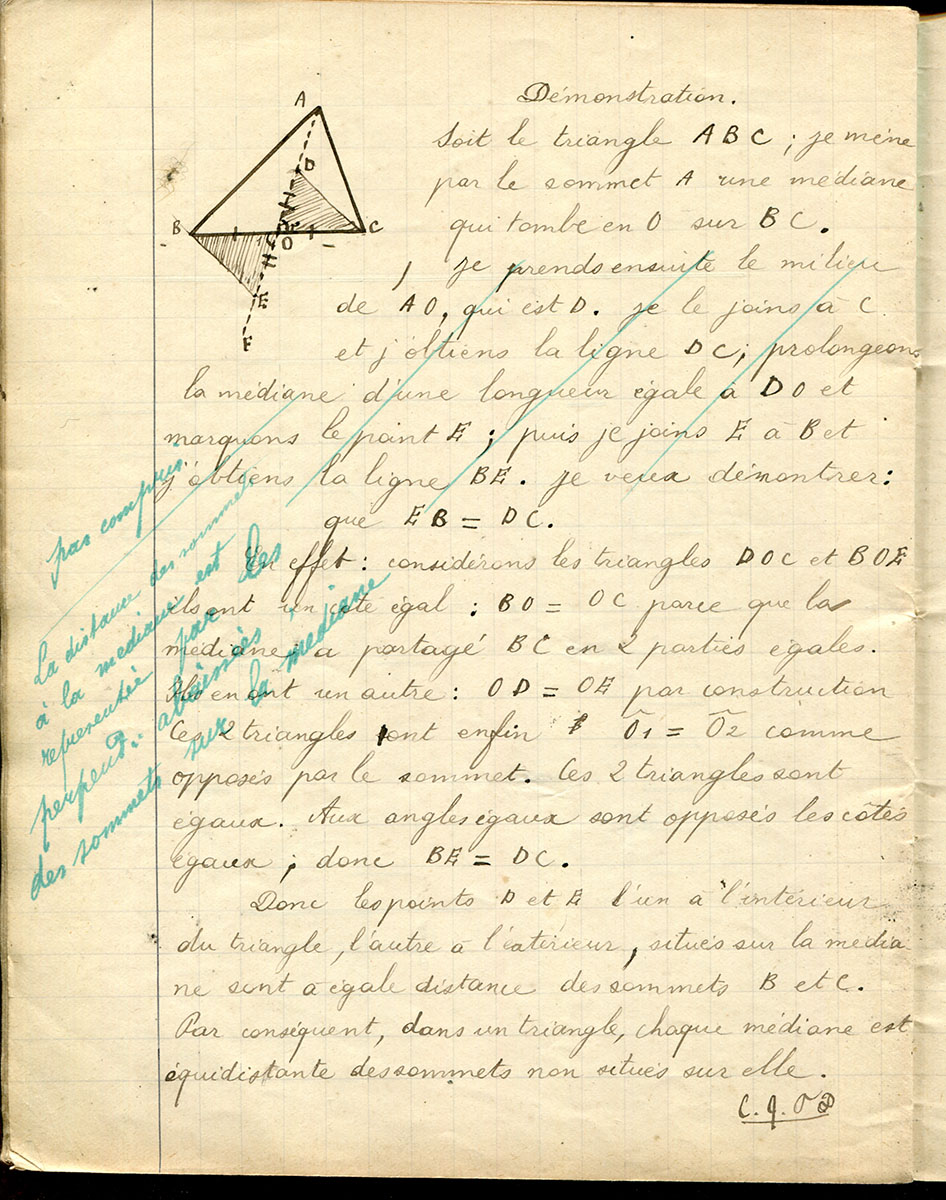 Démonstration.
A
D
B
C
O
E
F
Soit le triangle ABC ; je mène
par le sommet A une médiane
qui tombe en O sur BC.
Je prends ensuite le milieu
de AO, qui est D. Je le joins à C
et j'obtiens la ligne DC; prolongeons
la médiane d'une longueur égale à DO et
marquons le point E ; puis je joins E à B et
j'obtiens la ligne BE. Je veux démontrer:
que EB = DC.
En effet : considérons les triangles DOC et BOE
ils ont un côté égal : BO = OC parce que la
médiane a partagé BC en 2 parties égales.
Ils en ont un autre : OD = OE par construction
Ces 2 triangles ont enfin O1 = O2 comme
opposés par le sommet. Ces 2 triangles sont
égaux. Aux angles égaux sont opposés les côtés
égaux ; donc BE = DC.
Donc les points D et E l'un à l'intérieur
du triangle, l'autre à l'extérieur, situés sur la média
ne sont à égale distance des sommets B et C.
Par conséquent, dans un triangle, chaque médiane est
équidistante des sommets non situés sur elle.
C.q.F.D
pas compris
La distance des sommets
à la médiane est
représentée par les
perpend. abaissées
des sommets sur la médiane